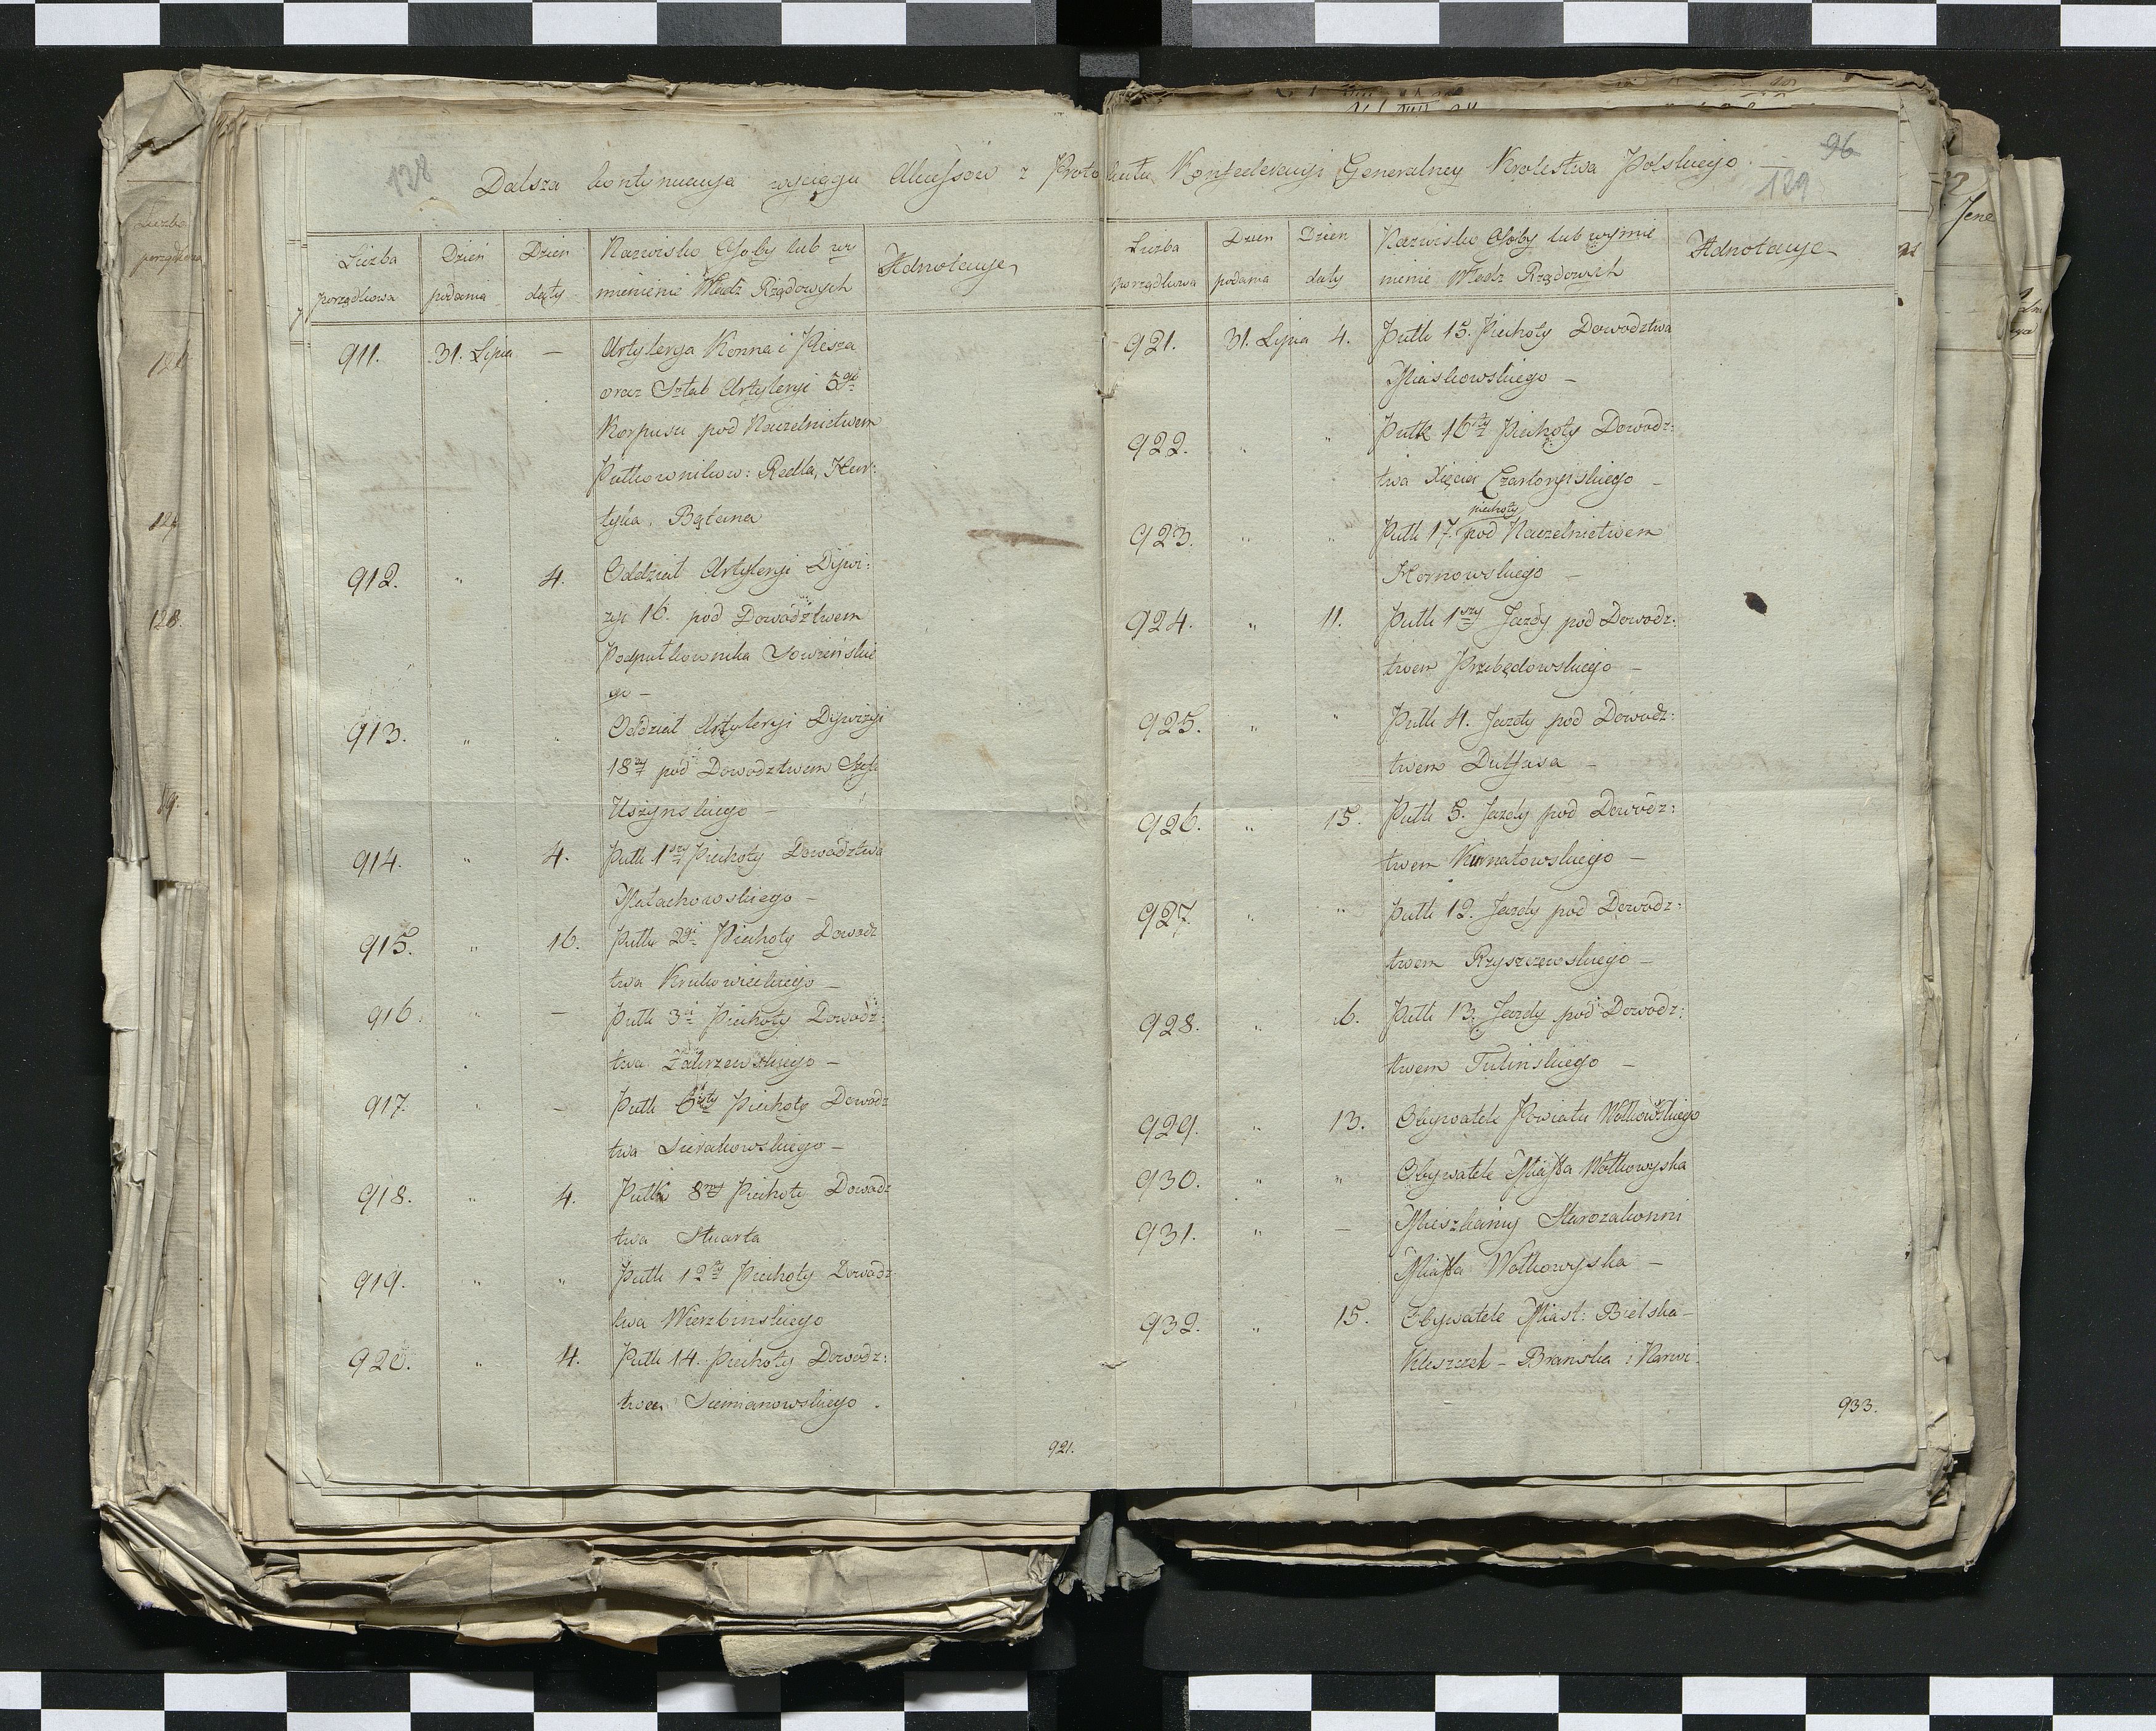 128
96
129
Dalsza kontynuacya wyciągu Akcessow z Protokułu Konfederacyi Generalney Krolestwa Polskiego
Liczba porządkowa
Dzień podania
Dzień daty
Nazwisko Osoby lub wy
mienienie Władz Rządowych
Adnotacye
911. 31. Lipca — Artylerya Konna i Piesza
oraz Sztab Artyleryi 5go
Korpusu pod Naczelnictwem
Pułkownikow: Redla, Hur:
tyka,
912. " 4. Oddział Artyleryi Dywi:
zyi 16. pod Dowództwem
Podpułkownika Sowińskie
go —
913. " " Oddział Artyleryi Dywizyi
18ey pod Dowodztwem Szefa
Uszynskiego —
914. " 4. Pułk 1szy Piechoty Dowodztwa
Małachowskiego —
915. " 16. Pułku 2gi Piechoty Dowodz
twa Krukowieckiego —
916. " — Pułk 3ci Piechoty Dowodz:
twa Zakrzewskiego —
917. " — Pułk 6sty Piechoty Dowodz
twa Sierakowskiego —
918. " 4. Pułk 8my Piechoty Dowodz
twa Stuarta
919. " " Pułk 12ty Piechoty Dowodz
twa Wierzbinskiego
920. " 4. Pułk 14. Piechoty Dowodz:
twem Siemianowskiego.
921.
Liczba porządkowa
Dzien podania
Dzien daty
Nazwisko Osoby lub wymie
nienie Władz Rządowych
Adnotacye
921. 31. Lipca 4. Pułk 15. Piechoty Dowodztwa
Miaskowskiego —
922. " " Pułk 16ty Piechoty Dowodz:
twa Xięcia Czartoryiskiego —
piechoty
923. " " Pułk 17. pod Naczelnictwem
Hornowskiego —
924. " 11. Pułk 1szy Jazdy pod Dowodz:
twem Przebędowskiego —
925. " " Pułk 4. Jazdy pod Dowodz:
twem Dulfusa —
926. " 15. Pułk 5. Jazdy pod Dowódz:
twem Kurnatowskiego —
927. " " Pułk 12. Jazdy pod Dowodz:
twem Rzyszczewskiego —
928. " 6. Pułk 13. Jazdy pod Dowodz:
twem Tulinskiego —
929. " 13. Obywatele Powiatu Wołkowskiego
930. " " Obywatele Miasta Wołkowyska
931. " — Mieszkańcy Starozakonni
Miasta Wołkowyska —
932. " 15. Obywatele Miast: Bielska —
Kleszczel — Branska i Narwi.
933.